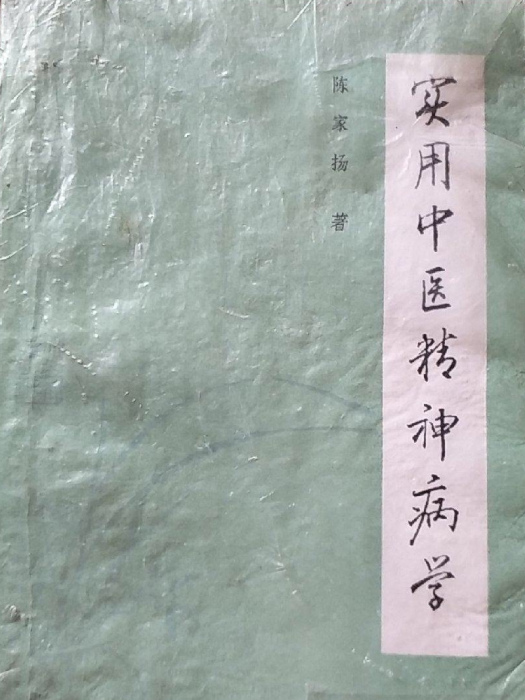 实用中医精神病学
陈家扬 著